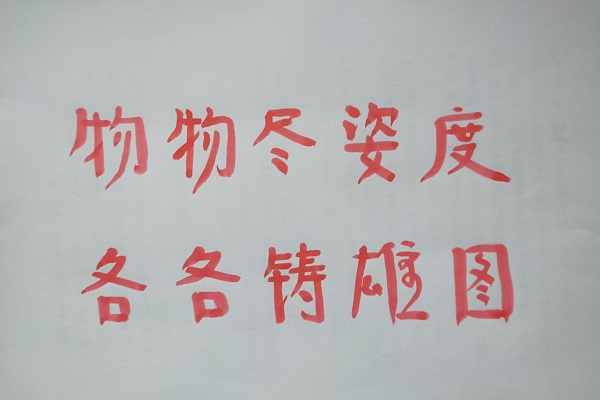 物物尽姿度
各各铸雄图